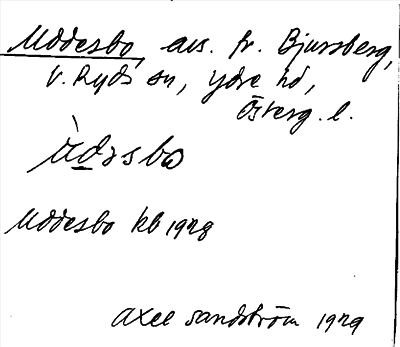 Uddesbo, avs. fr. Bjursberg,
V. Ryds sn, Ydre hd,
Österg. l.
ùdəsbo
Uddesbo kb 1928
Axel Sandström 1929